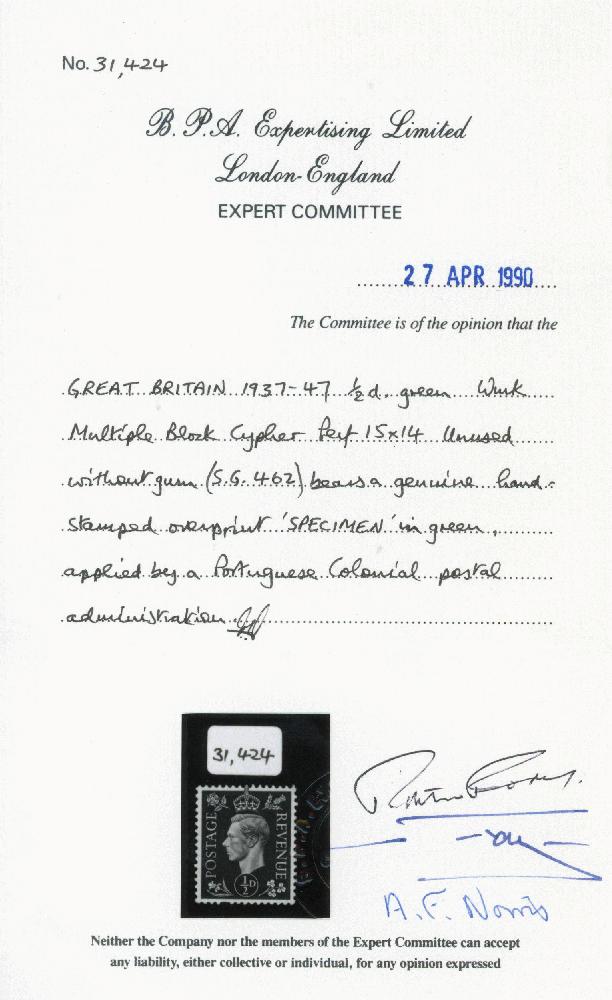 No. 31,424
B. P. A. Expertising Limited
London-England
EXPERT COMMITTEE
27 APR 1990
The Committee is of the opinion that the
GREAT BRITAIN 1937-47 ½d. green Wmk
Multiple Block Cypher Perf 15x14 Unused
without gum (S.G. 462) bears a genuine hand-
stamped overprint 'SPECIMEN' in green,
applied by a Portuguese Colonial postal
administration
31,424
POSTAGE REVENUE
½D
A. F. Norris
Neither the Company nor the members of the Expert Committee can accept
any liability, either collective or individual, for any opinion expressed